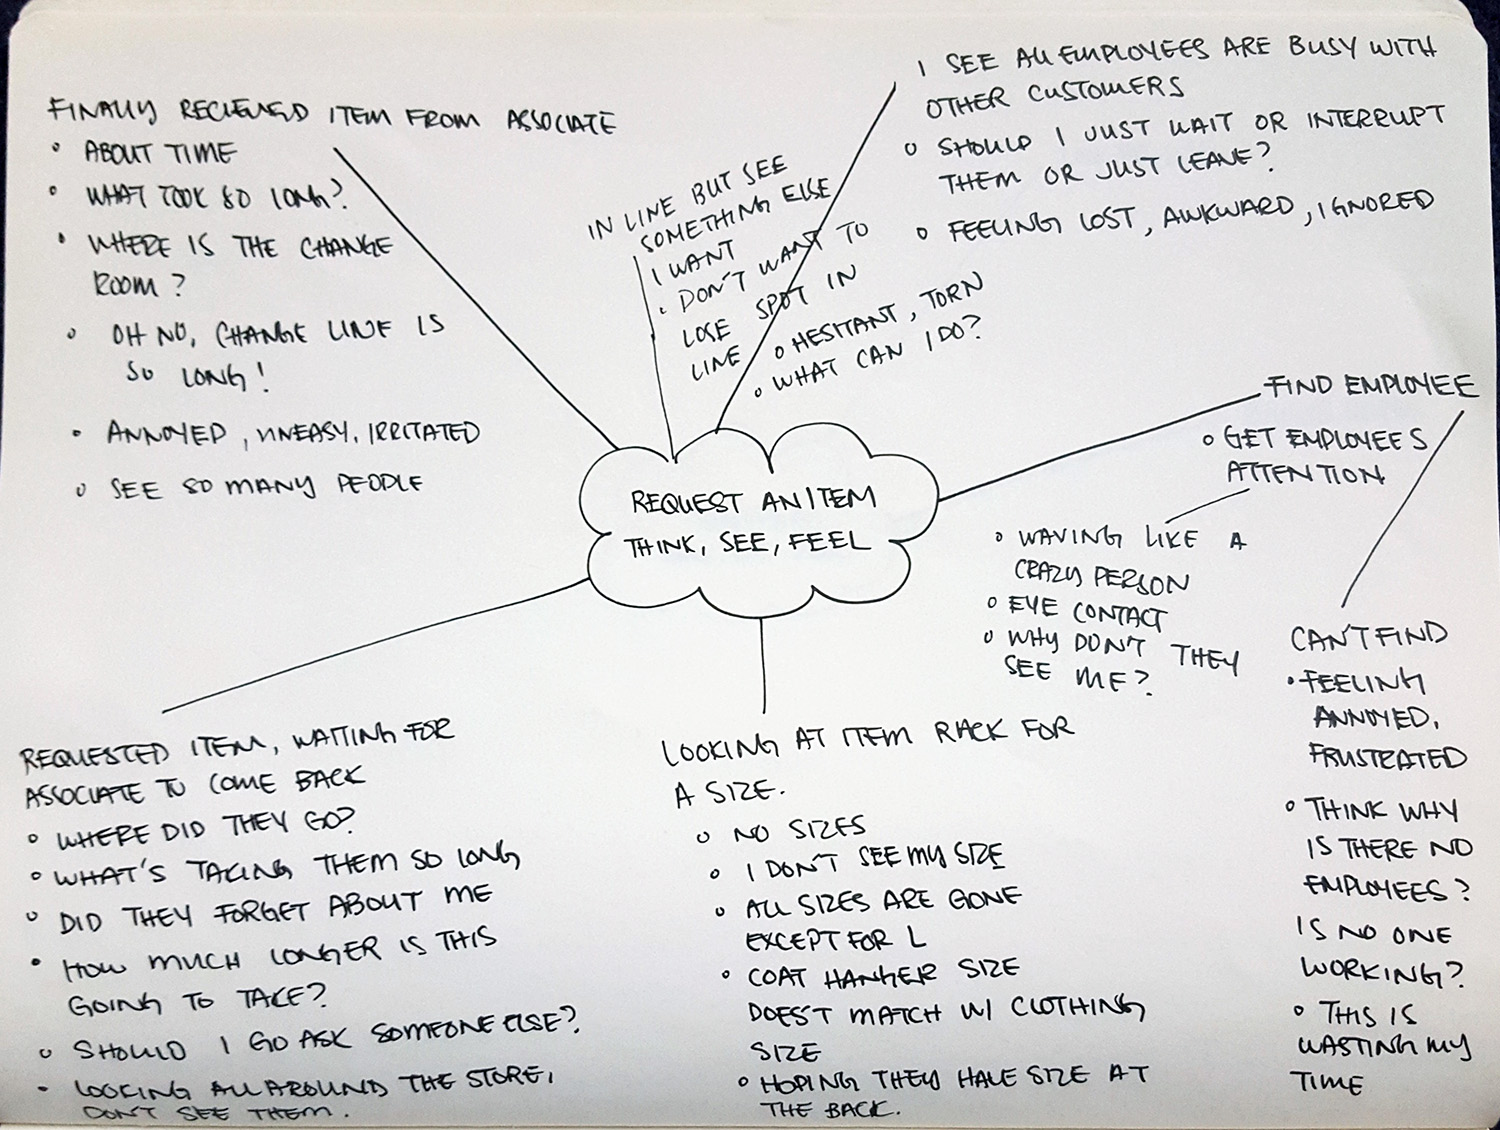 FINALLY RECIEVED ITEM FROM ASSOCIATE
• ABOUT TIME
• WHAT TOOK SO LONG?
• WHERE IS THE CHANGE
ROOM?
• OH NO, CHANGE LINE IS
SO LONG!
• ANNOYED, UNEASY, IRRITATED
• SEE SO MANY PEOPLE
IN LINE BUT SEE
SOMETHING ELSE
I WANT
• DON'T WANT TO
LOSE SPOT IN
LINE
• HESITANT, TORN
• WHAT CAN I DO?
I SEE ALL EMPLOYEES ARE BUSY WITH
OTHER CUSTOMERS
• SHOULD I JUST WAIT OR INTERRUPT
THEM OR JUST LEAVE?
• FEELING LOST, AWKWARD, IGNORED
FIND EMPLOYEE
• GET EMPLOYEES
ATTENTION
• WAVING LIKE A
CRAZY PERSON
• EYE CONTACT
• WHY DON'T THEY
SEE ME?
CAN'T FIND
• FEELING
ANNOYED,
FRUSTRATED
• THINK WHY
IS THERE NO
EMPLOYEES?
IS NO ONE
WORKING?
• THIS IS
WASTING MY
TIME
REQUEST AN ITEM
THINK, SEE, FEEL
REQUESTED ITEM, WAITING FOR
ASSOCIATE TO COME BACK
• WHERE DID THEY GO?
• WHAT'S TAKING THEM SO LONG
• DID THEY FORGET ABOUT ME
• HOW MUCH LONGER IS THIS
GOING TO TAKE?
• SHOULD I GO ASK SOMEONE ELSE?
• LOOKING ALL AROUND THE STORE,
DON'T SEE THEM.
LOOKING AT ITEM RACK FOR
A SIZE.
• NO SIZES
• I DON'T SEE MY SIZE
• ALL SIZES ARE GONE
EXCEPT FOR L
• COAT HANGER SIZE
DOES'T MATCH W/ CLOTHING
SIZE
• HOPING THEY HAVE SIZE AT
THE BACK.